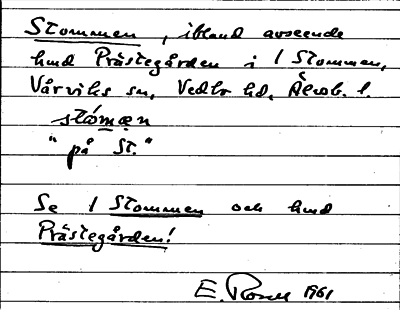 Stommen, ibland avseende
hmd Prästegården i 1 Stommen,
Vårviks sn, Vedbo hd, Älvsb. l.
stómæn
"på St."
Se 1 Stommen och hmd
Prästegården!
E. Rosell 1961